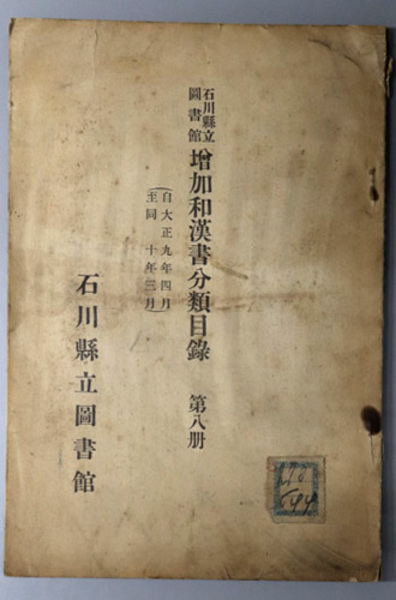 石川縣立
圖書館
增加和漢書分類目錄 第八册
(自大正九年四月
至同 十年三月)
石川縣立圖書館